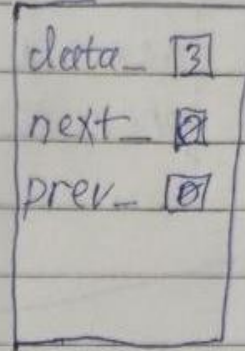 data_ 3
next_ 0
prev_ 0